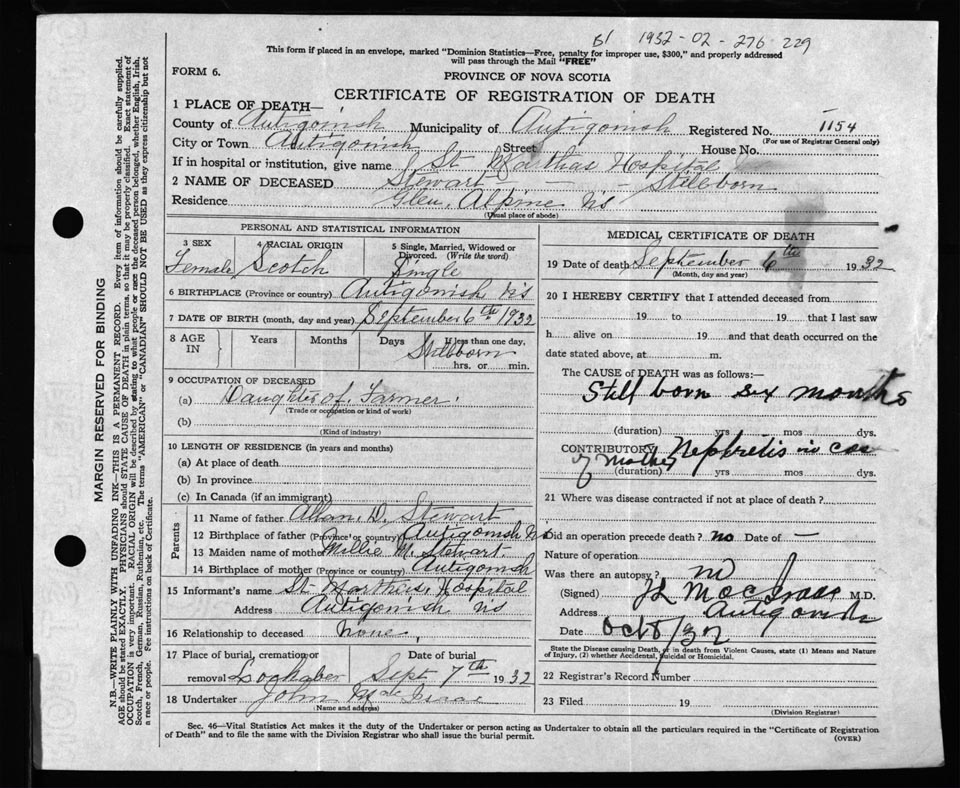 B1 1932-02-276 229
This form if placed in an envelope, marked "Dominion Statistics—Free, penalty for improper use, $300," and properly addressed
will pass through the Mail "FREE"
FORM 6.
PROVINCE OF NOVA SCOTIA
CERTIFICATE OF REGISTRATION OF DEATH
1 PLACE OF DEATH—
County of Antigonish Municipality of Antigonish Registered No. 1154
(For use of Registrar General only)
City or Town Antigonish Street House No.
If in hospital or institution, give name St Marthas Hospital
2 NAME OF DECEASED Stewart - Stillborn
Residence Glen Alpine NS
(Usual place of abode)
PERSONAL AND STATISTICAL INFORMATION
3 SEX Female
4 RACIAL ORIGIN Scotch
5 Single, Married, Widowed or Divorced. (Write the word) Single
6 BIRTHPLACE (Province or country) Antigonish NS
7 DATE OF BIRTH (month, day and year) September 6th 1932
8 AGE IN Years Months Days If less than one day,
Stillborn
hrs. or min.
9 OCCUPATION OF DECEASED
(a) Daughter of Farmer.
(Trade or occupation or kind of work)
(b)
(Kind of industry)
10 LENGTH OF RESIDENCE (in years and months)
(a) At place of death
(b) In province
(c) In Canada (if an immigrant)
Parents
11 Name of father Allan. D. Stewart
12 Birthplace of father (Province or country) Antigonish NS
13 Maiden name of mother Millie M. Stewart.
14 Birthplace of mother (Province or country) Antigonish
15 Informant's name St. Marthas, Hospital
Address Antigonish NS
16 Relationship to deceased None,
17 Place of burial, cremation or removal Lochaber
Date of burial Sept 7th 1932
18 Undertaker John Mac Isaac
(Name and address)
MEDICAL CERTIFICATE OF DEATH
19 Date of death September 6th 1932
(Month, day and year)
20 I HEREBY CERTIFY that I attended deceased from
19 to 19 that I last saw
h alive on 19 and that death occurred on the
date stated above, at m.
The CAUSE of DEATH was as follows:
Still born six months
(duration) yrs mos dys.
CONTRIBUTORY Nephritis in case
of Mother
(duration) yrs mos dys.
21 Where was disease contracted if not at place of death?
Did an operation precede death? no Date of —
Nature of operation
Was there an autopsy? no
(Signed) MacIsaac M.D.
Address Antigonish
Date Oct 8/32
State the Disease causing Death, or in death from Violent Causes, state (1) Means and Nature
of Injury, (2) whether Accidental, Suicidal or Homicidal.
22 Registrar's Record Number
23 Filed 19
(Division Registrar)
Sec. 46—Vital Statistics Act makes it the duty of the Undertaker or person acting as Undertaker to obtain all the particulars required in the "Certificate of Registration
of Death" and to file the same with the Division Registrar who shall issue the burial permit.
(OVER)
MARGIN RESERVED FOR BINDING
N.B.—WRITE PLAINLY WITH UNFADING INK—THIS IS A PERMANENT RECORD. Every item of information should be carefully supplied.
AGE should be stated EXACTLY. PHYSICIANS should STATE CAUSE OF DEATH in plain terms, so that it may be properly classified. Exact statement of
OCCUPATION is very important. RACIAL ORIGIN will be described by stating to what people or race the deceased person belonged, whether English, Irish,
Scotch, French, German, Russian, Ruthenian, etc. The terms "AMERICAN" or "CANADIAN" SHOULD NOT BE USED as they express citizenship but not
a race or people. See instructions on back of Certificate.